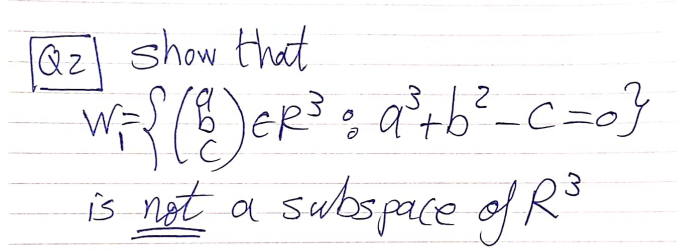 Q2 show that
W₁={(a b c) ∈ R³ : a³+b²-c=0}
is not a subspace of R³